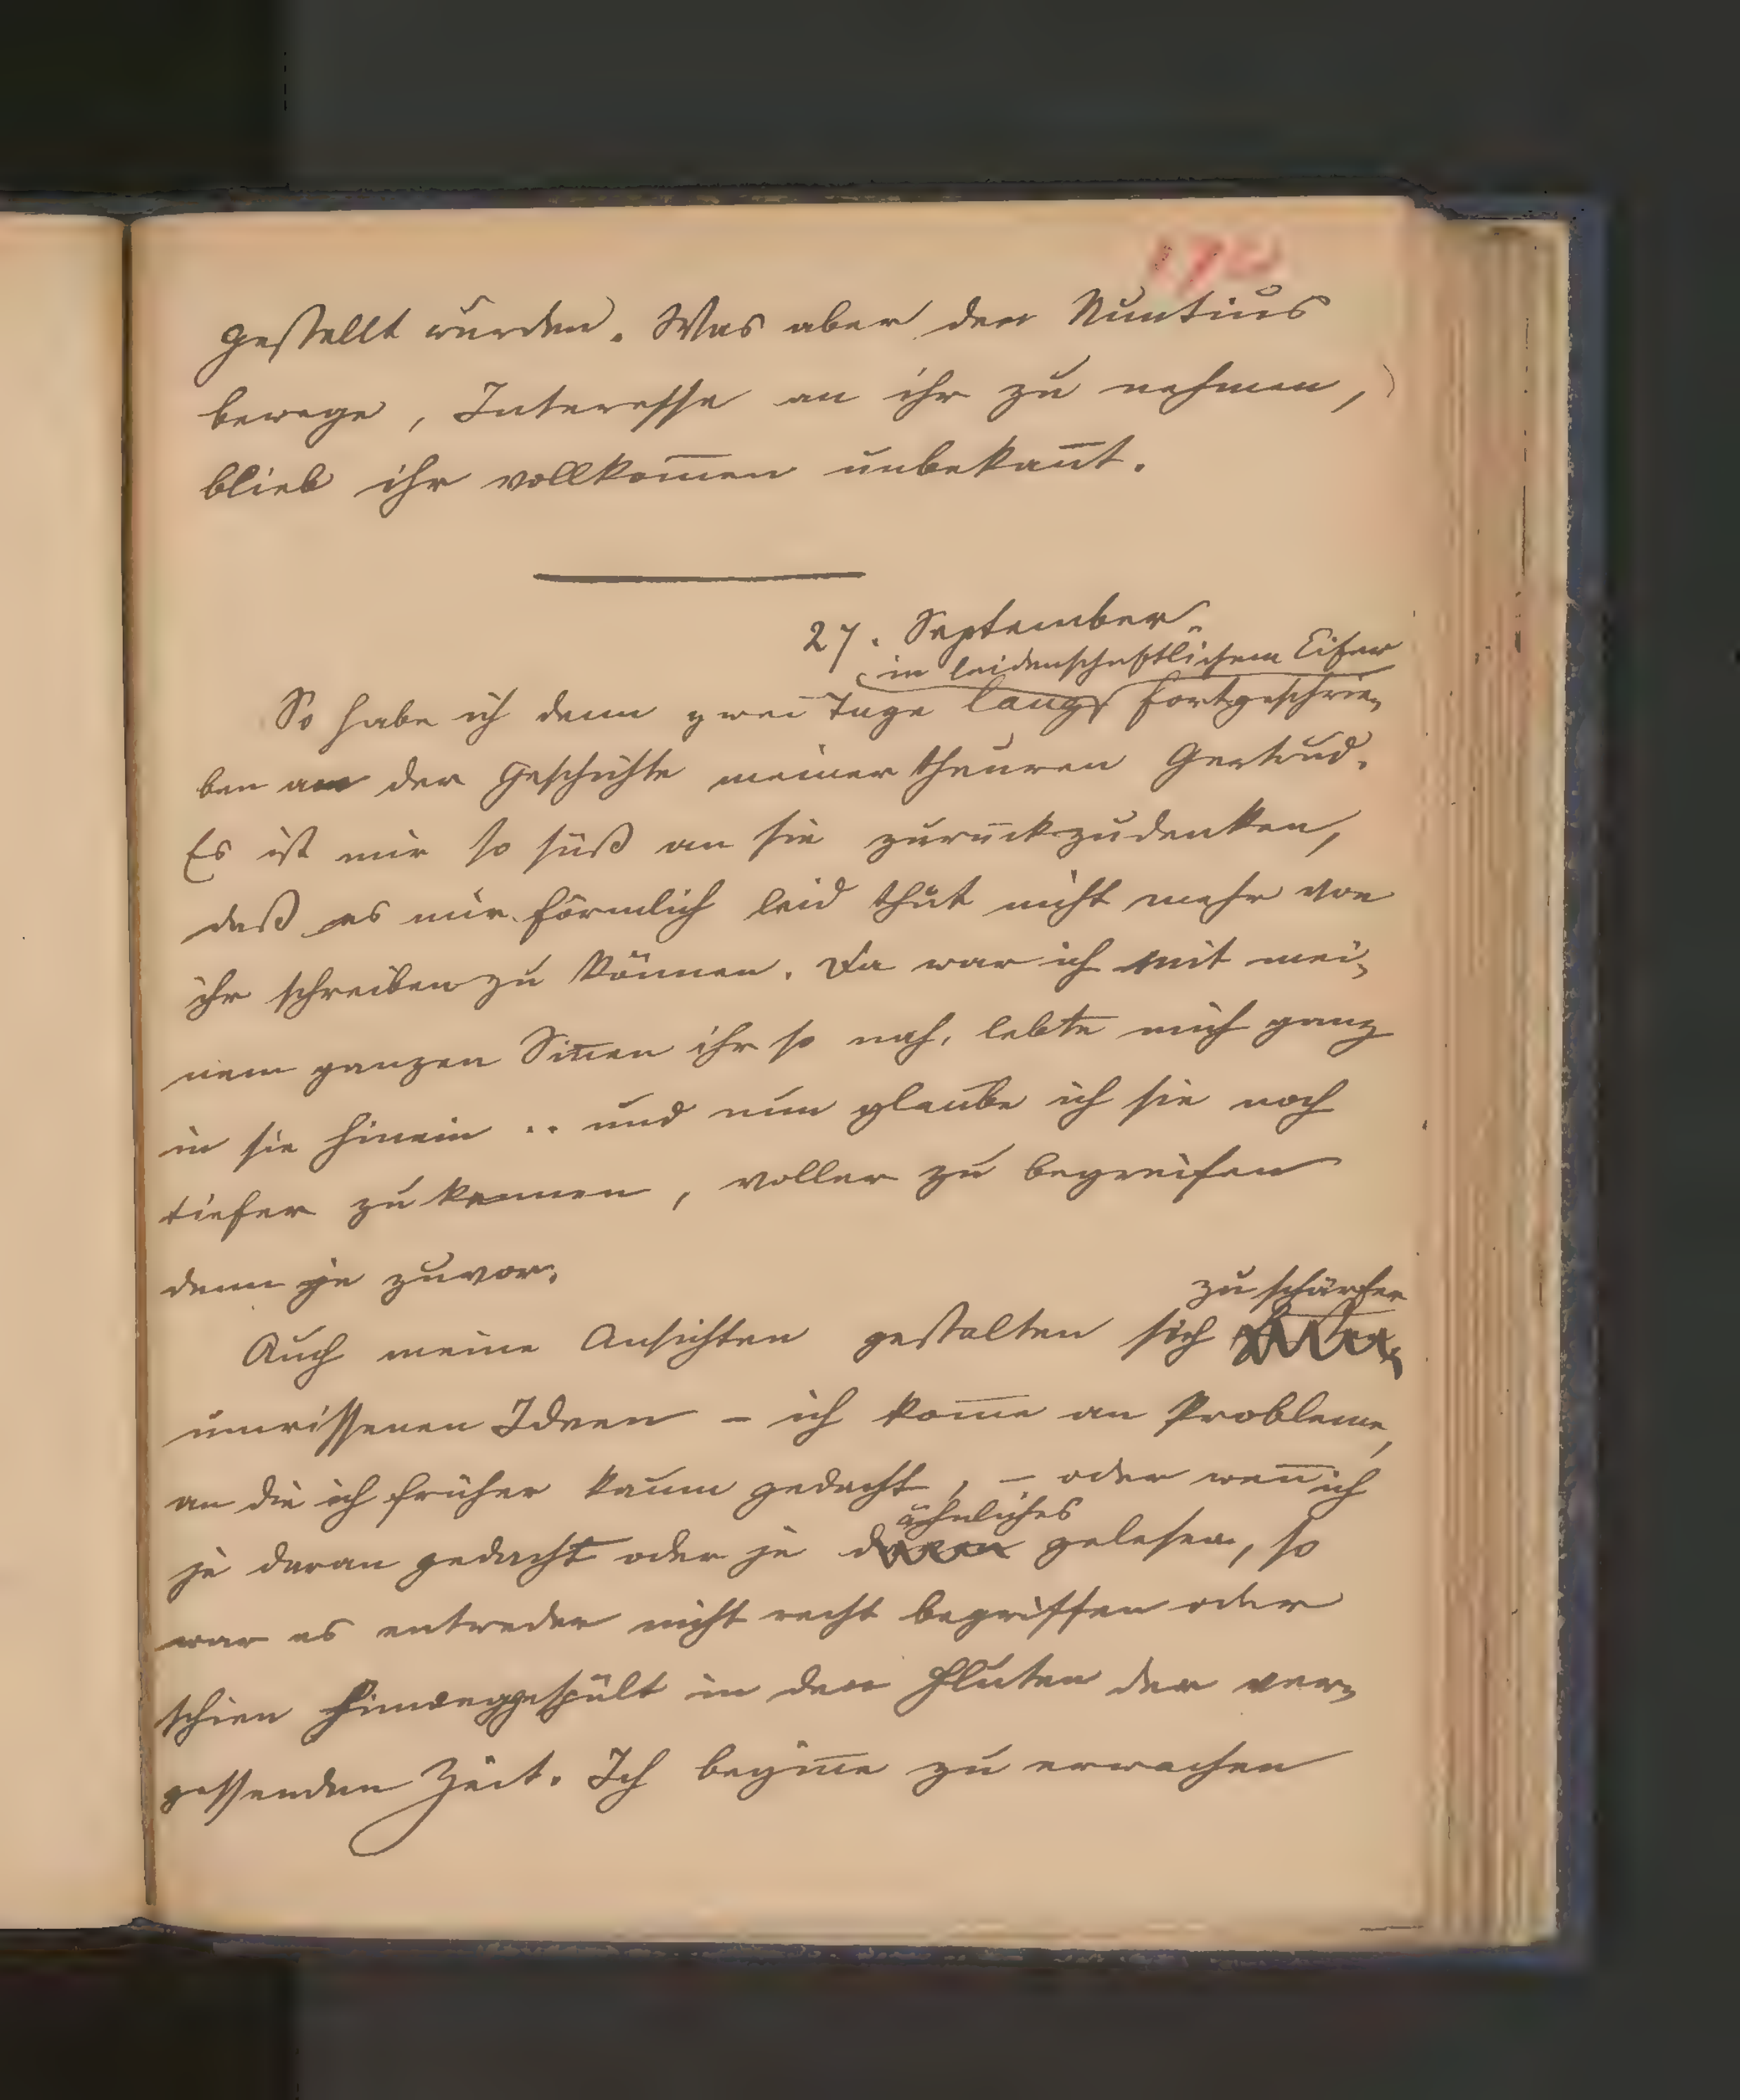 gestellt wurden. Was aber den Nuntius
bewege, Interesse an ihr zu nehmen,
blieb ihr vollkom̅en unbekan̅t.
27. September.
in leidenschaftlichem Eifer
So habe ich denn zwei Tage lang fortgeschrie-
ben an der Geschichte meiner theuren Gertrud.
Es ist mir so süß an sie zurückzudenken,
daß es mir förmlich leid thut nicht mehr von
ihr schreiben zu können. Da war ich mit mei-
nem ganzen Sin̅en ihr so nah, lebte mich ganz
in sie hinein .. und nun glaube ich sie noch
tiefer zu kennen, voller zu begreifen
denn je zuvor.
zu schärfer
Auch meine Ansichten gestalten sich
umrissenen Ideen – ich kom̅e an Probleme,
an die ich früher kaum gedacht, – oder wen̅ ich
ähnliches
je daran gedacht oder je gelesen, so
war es entweder nicht recht begriffen oder
schien hinweggespült in den Fluten der ver-
gessenden Zeit. Ich begin̅e zu erwachen